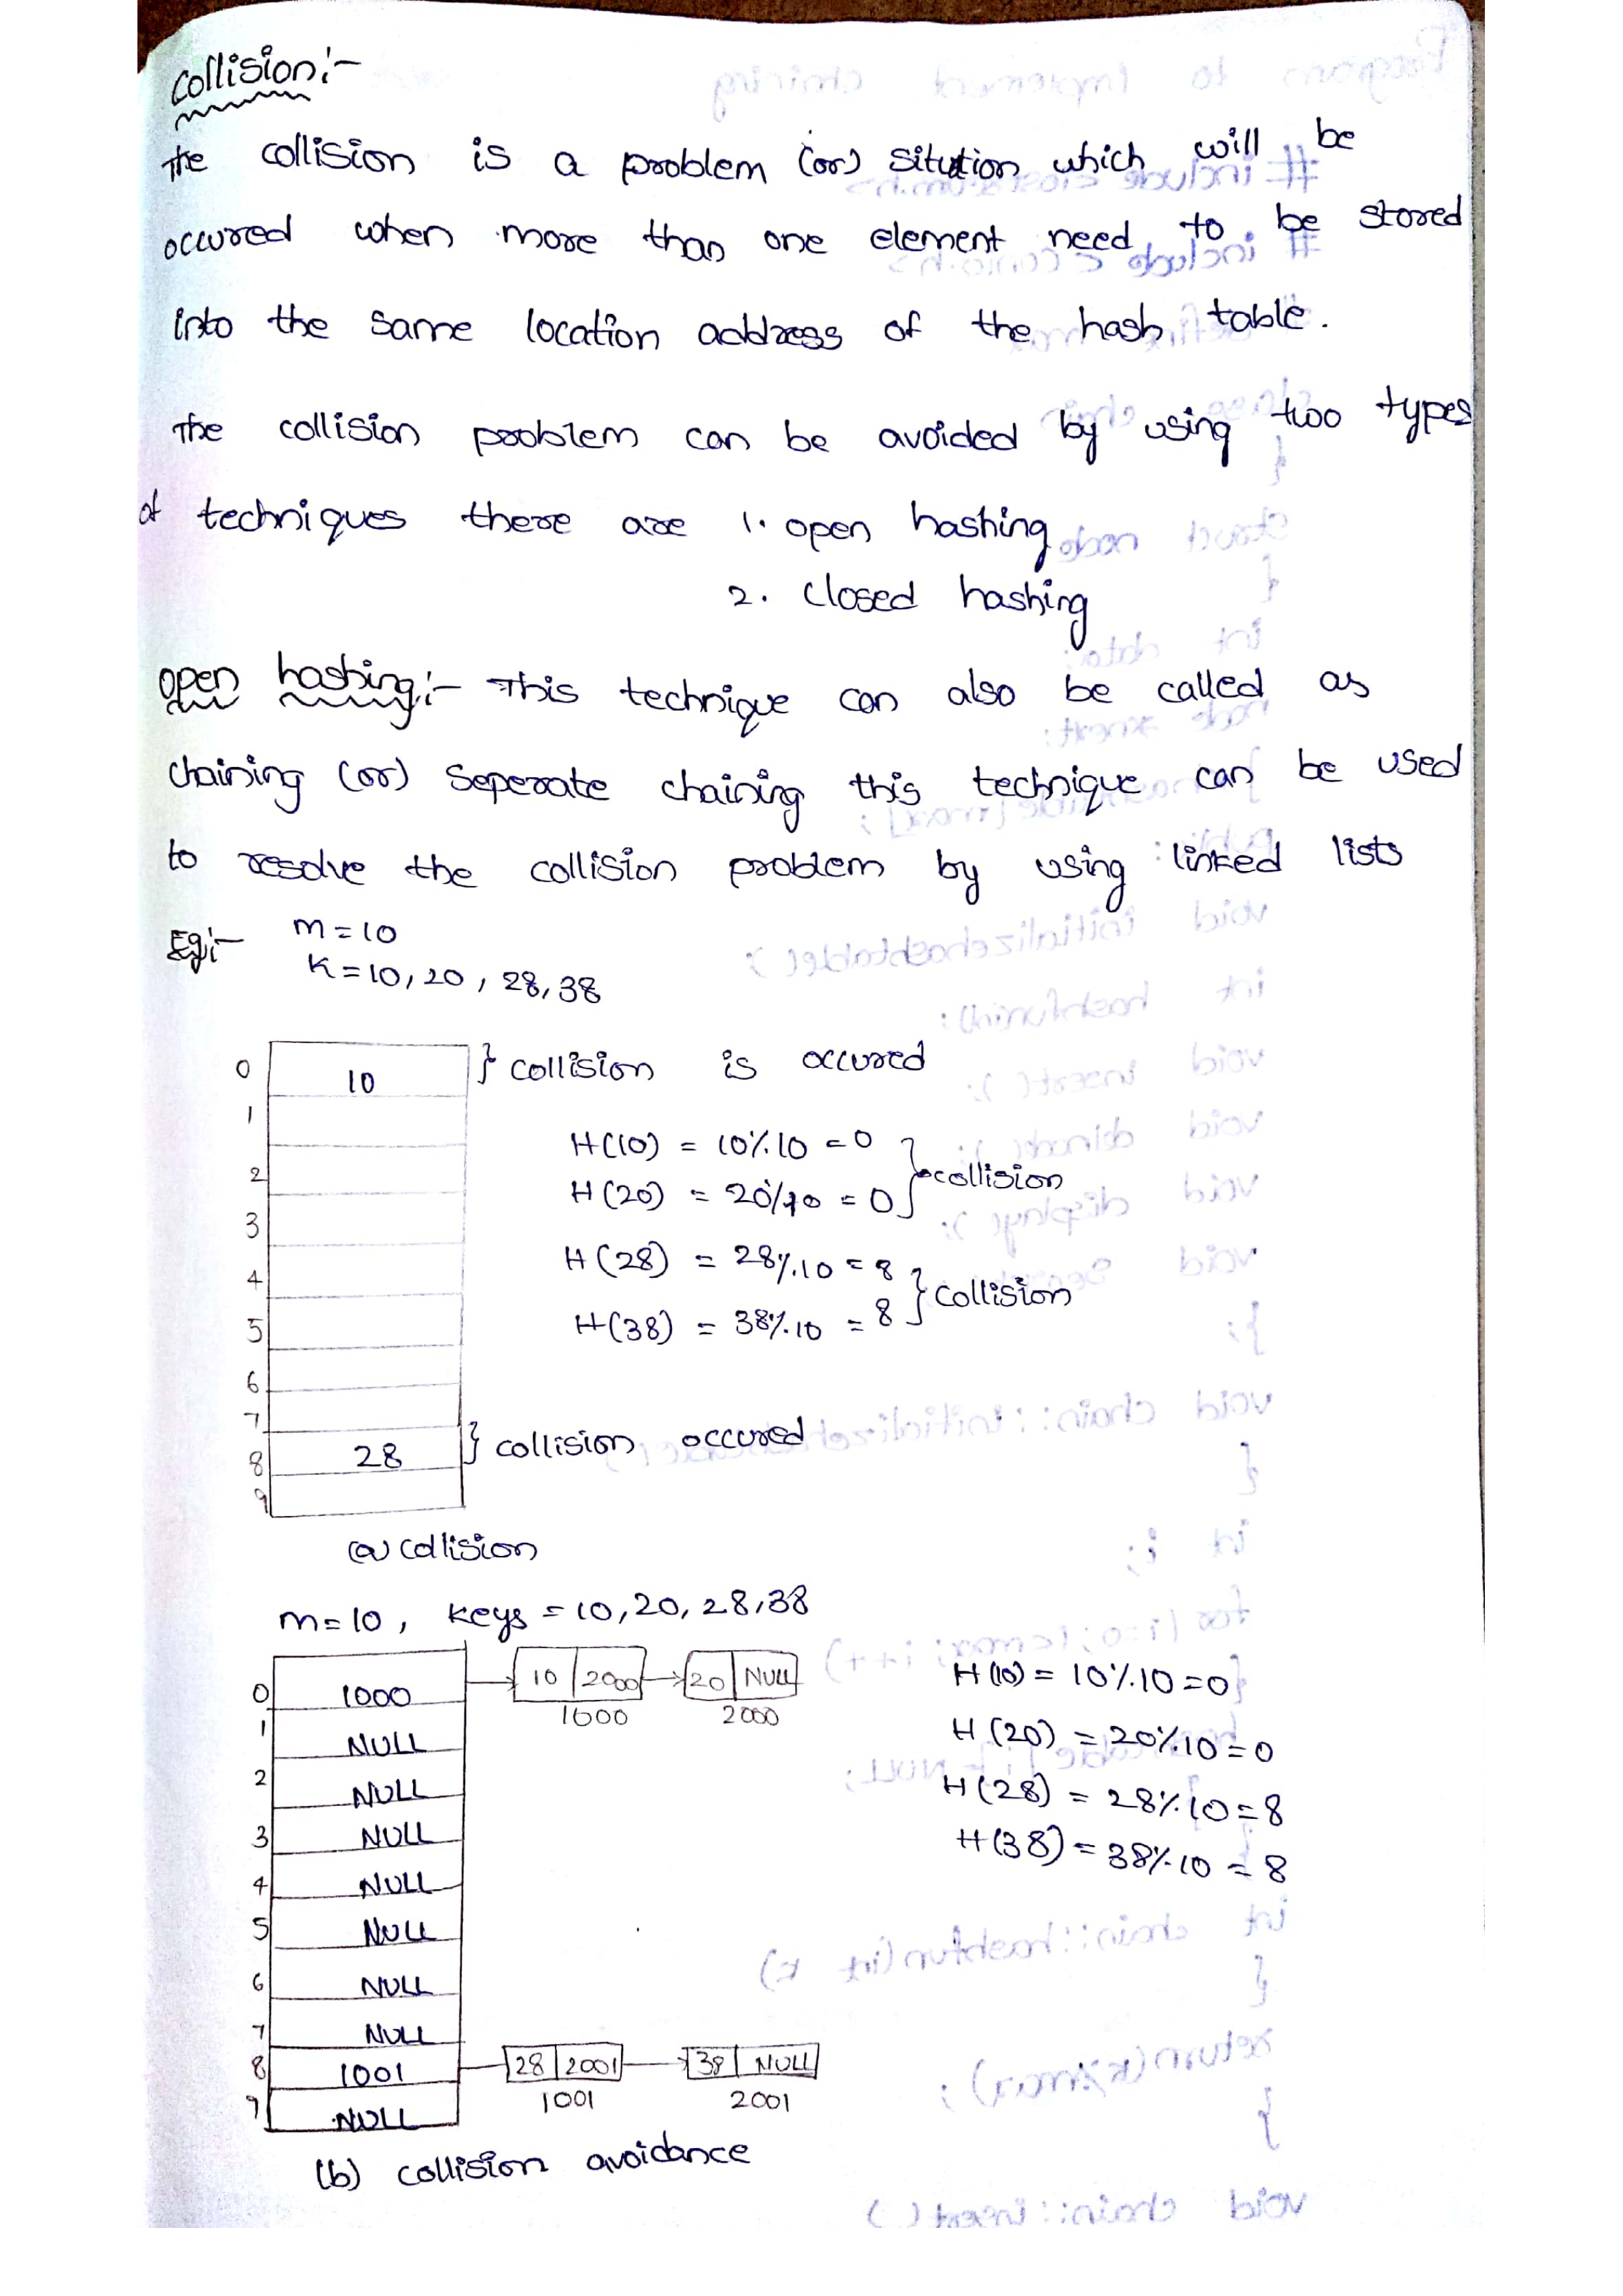 Collision:-
The collision is a problem (or) sitution which will be
occured when more than one element need to be stored
into the same location address of the hash table.
The collision problem can be avoided by using two types
of techniques there are 1. open hashing
2. closed hashing
open hashing:- This technique can also be called as
chaining (or) Seperate chaining this technique can be used
to resolve the collision problem by using linked lists
Eg:- m=10
K=10,20,28,38
0 10 } collision is occured
1
H(10) = 10%10 = 0 } collision
2
H(20) = 20%10 = 0
3
H(28) = 28%10 = 8 } collision
4
H(38) = 38%10 = 8
5
6
7
8 28 } collision occured
9
(a) collision
m=10, keys = 10,20,28,38
0 1000 10 2000 20 NULL H(10) = 10%10=0
1000 2000
1 NULL H(20) = 20%10=0
2 NULL H(28) = 28%10=8
3 NULL H(38) = 38%10=8
4 NULL
5 NULL
6 NULL
7 NULL
8 1001 28 2001 38 NULL
1001 2001
9 NULL
(b) collision avoidance